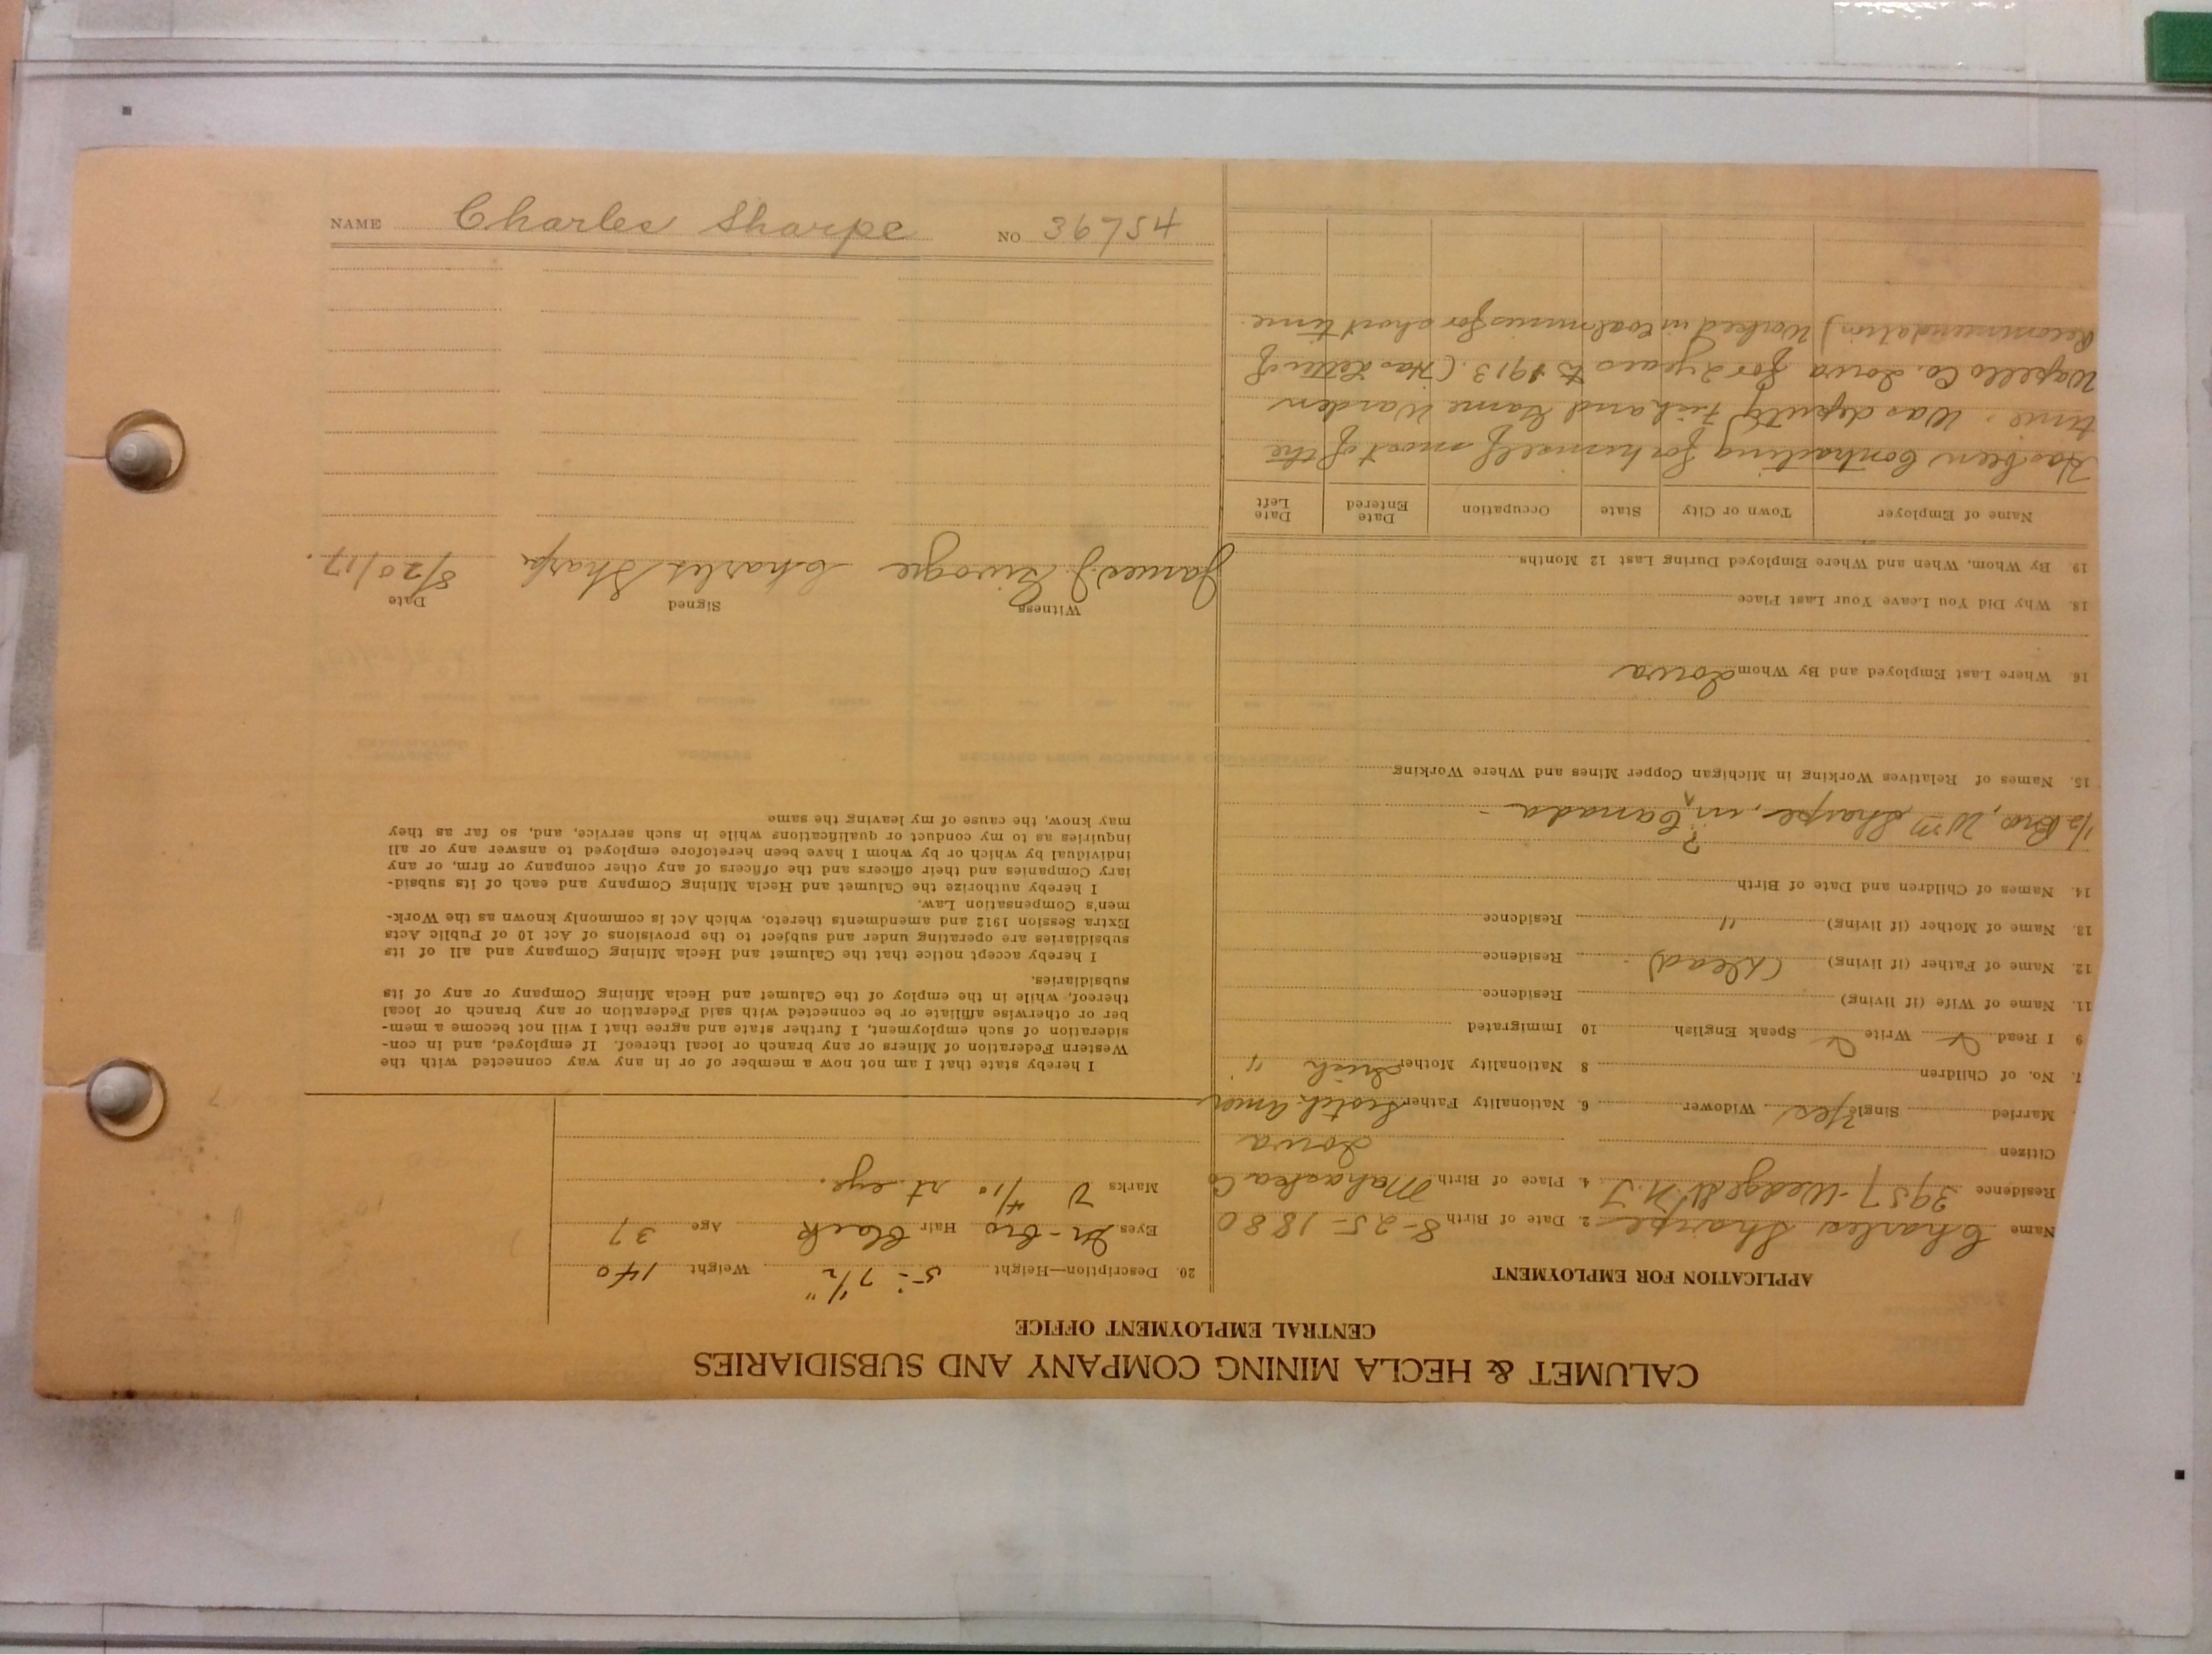 NAME Charles Sharpe NO 36754
CALUMET & HECLA MINING COMPANY AND SUBSIDIARIES
CENTRAL EMPLOYMENT OFFICE
APPLICATION FOR EMPLOYMENT
Name Charles Sharpe 2. Date of Birth 8-25-1880
Residence 3957-Wedge St N.J 4. Place of Birth Mahaska Co
Citizen Iowa
Married Single Yes Widower 6. Nationality Father Scotch Amer
7. No. of Children 8 Nationality Mother Irish "
9 I Read Write Speak English 10 Immigrated
11. Name of Wife (if living) Residence
12. Name of Father (if living) (Dead) Residence
13. Name of Mother (if living) " Residence
14. Names of Children and Date of Birth
?
1/2 Bro, Wm Sharpe, in Canada -
15. Names of Relatives Working in Michigan Copper Mines and Where Working
16. Where Last Employed and By Whom Iowa
18. Why Did You Leave Your Last Place
19. By Whom, When and Where Employed During Last 12 Months
Name of Employer Town or City State Occupation Date Entered Date Left
Has been Contracting for himself most of the
time. Was deputy Fish and Game Warden
Wapello Co. Iowa for 2 years to 1913. (Has Letter of
Recommendation) Worked in Coal mines for short time.
20. Description—Height 5'-7 1/2" Weight 140
Eyes Bro Hair Black Age 37
Marks V 4/10 rt eye.
I hereby state that I am not now a member of or in any way connected with the
Western Federation of Miners or any branch or local thereof. If employed, and in con-
sideration of such employment, I further state and agree that I will not become a mem-
ber or otherwise affiliate or be connected with said Federation or any branch or local
thereof, while in the employ of the Calumet and Hecla Mining Company or any of its
subsidiaries.
I hereby accept notice that the Calumet and Hecla Mining Company and all of its
subsidiaries are operating under and subject to the provisions of Act 10 of Public Acts
Extra Session 1912 and amendments thereto, which Act is commonly known as the Work-
men's Compensation Law.
I hereby authorize the Calumet and Hecla Mining Company and each of its subsid-
iary Companies and their officers and the officers of any other company or firm, or any
individual by which or by whom I have been heretofore employed to answer any or all
inquiries as to my conduct or qualifications while in such service, and, so far as they
may know, the cause of my leaving the same
Date Signed Witness
8/20/17. Charles Sharpe James J.